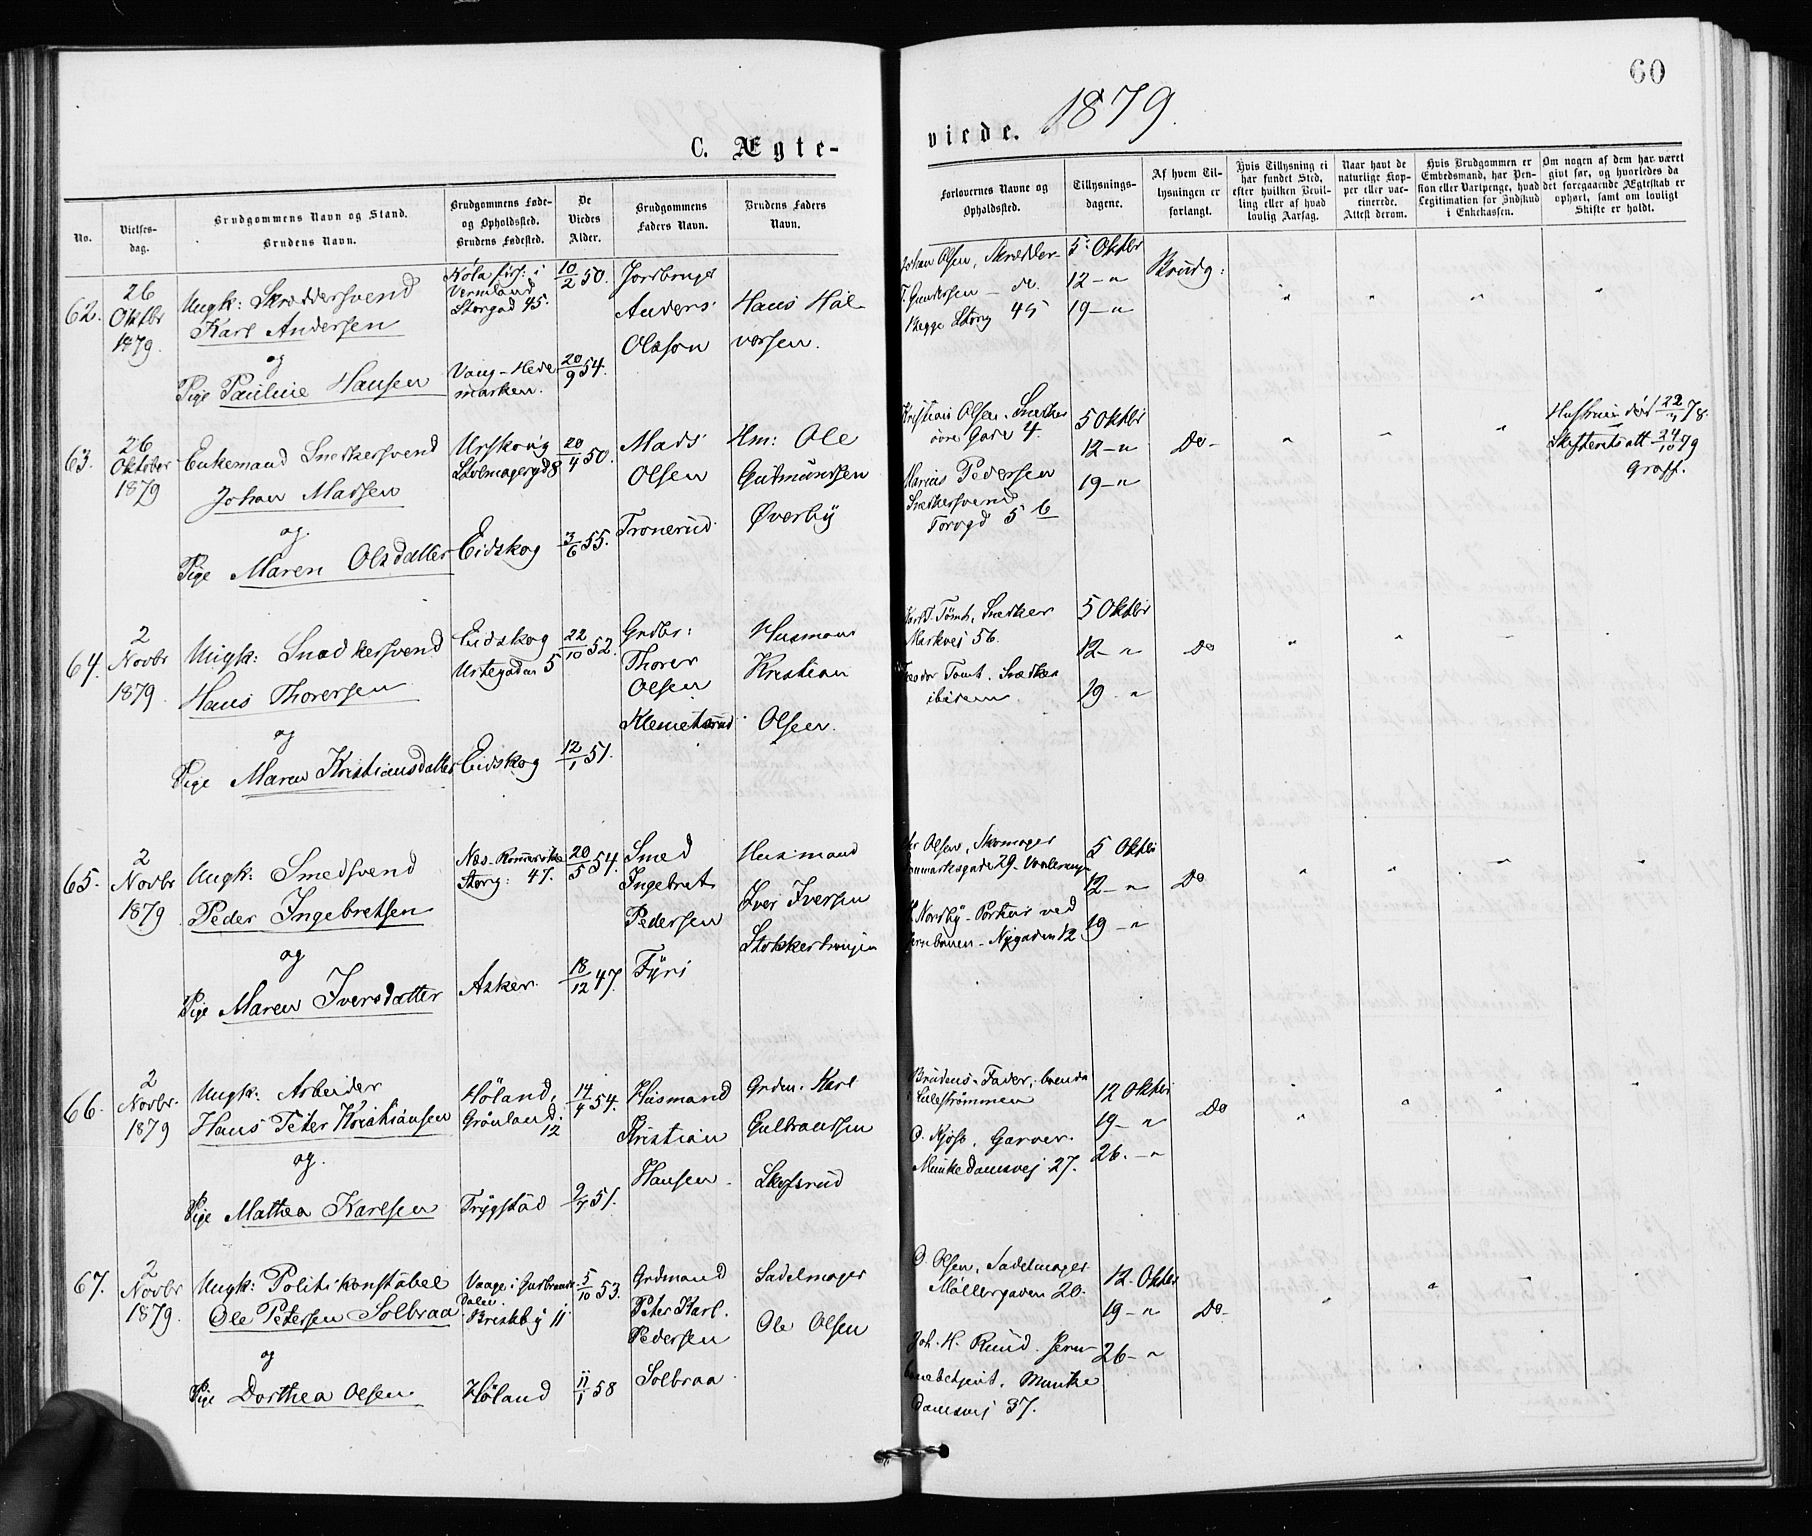 60
1879.
C. Ægte-
viede.
No.
Vielses-
dag.
Brudgommens Navn og Stand.
Brudens Navn.
Brudgommens Føde-
og Opholdssted.
Brudens Fødested.
De
Viedes
Alder.
Brudgommens
Faders Navn.
Brudens Faders
Navn.
Forlovernes Navne og
Opholdssted.
Tillysnings-
dagene.
Af hvem Til-
lysningen er
forlangt.
Hvis Tillysning ei
har fundet Sted,
efter hvilken Bevil-
ling eller af hvad
lovlig Aarsag.
Naar havt de
naturlige Kop-
per eller vac-
cinerede.
Attest derom.
Hvis Brudgommen er
Embedsmand, har Pen-
sion eller Vartpenge, hvad
Legitimation for Indskud
i Enkekassen.
Om nogen af dem har været
givt før, og hvorledes da
det foregaaende Ægteskab er
ophørt, samt om lovligt
Skifte er holdt.
62.
26
Oktbr
1879.
Ungk: Skræddersvend
Karl Andersen
og
Pige Pauline Hansen
Køla i
Vermland
Storgad 45.
Vang-Hede
marken.
10/2 50.
20/9 54.
Jordbruger
Anders
Olsson
Hans Hal-
vorsen.
Johan Olsen, Skrædder
T. Gundersen - do.
Begge Storg 45
5: Oktbr
12-"
19-"
Brudg:
63.
26
Oktober
1879
Enkemand Snedkersvend
Johan Madsen
og
Pige Maren Olsdatter
Urskoug
Stolmagergd 8
Eidskog
20/4 50.
3/6 55.
Mads
Olsen
Tronerud
Hm: Ole
Gutmundsen
Øverby
Kristian Olsen, Snedker
øvre Gade 4.
Marius Pedersen
Snedkersvend
Torvgd 5 b
5 Oktbr
12-"
19-"
Do-
Hustruen død 22/11 78.
Skifteretsatt 24/10 79
Graff.
64.
2
Novbr
1879
Ungk: Snedkersvend
Hans Thorersen
og
Pige Maren Kristiansdatter
Eidskog
Urtegaden 5
Eidskog
22/10 52.
12/1 51.
Grdbr:
Thorer
Olsen
Klemetsrud
Husmand
Kristian
Olsen.
Tømt, Snedker
Markvej 56.
Tomt, Snedker
ibidem
5 Oktbr
12-"
19.-"
Do
65.
2
Novbr
1879
Ungk: Smedsvend
Peder Ingebretsen
og
Pige Maren Iversdatter
Næs-Romerike
Storg: 47.
Asker.
20/5 54.
18/12 47.
Smed
Ingebret
Pedersen
Fyri
Husmand
Iver Iversen
Stokkertrangen
Olsen, Skomager
Danmarksgade 29- Vaalerengen
Nordby- Portner ved
Jernbanen- Nygaden 12
5 Oktbr
12-"
19-"
Do
66.
2
Novbr.
1879
Ungk: Arbeider
Hans Peter Kristiansen
og.
Pige Mathea Karlsen
Høland,
Grønland.
12
Trygstad
14/4 54.
9/7 51.
Husmand
Kristian
Hansen.
Grdm. Karl
Gulbrandsen
Skofsrud
Brudens Fader, boende
Lillestrømmen
O. Kjøs, Garver.
Munkedamsvej 27.
12 Oktbr
19-"
26.-"
Do
67.
2
Novbr
1879.
Ungk: Politikonstabel
Ole Petersen Solbraa
og
Pige Dorthea Olsen
Vaage i Gudbrands-
dalen.
Briskeby 11
Høland
5/10 53.
11/1 58
Grdmand
Peter Karl.
Pedersen
Solbraa.
Sadelmager
Ole Olsen
O. Olsen, Sadelmager
Møllergaden 20.
Joh. H. Ruud. Jern-
banebetjent, Munke
Damsvej 37.
12- Oktbr
19-"
26-"
Do-